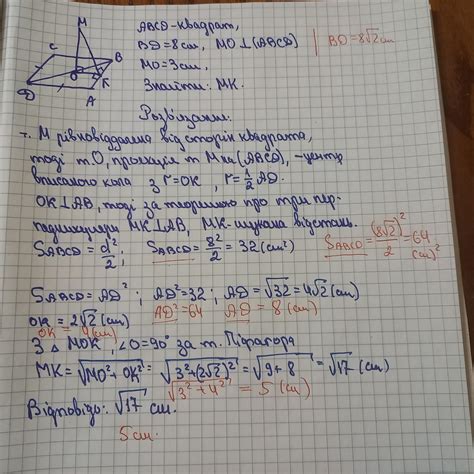 M
ABCD-квадрат,
BD=8см, MO⊥(ABCD)
BD=8√2см
MO=3см,
Знайти: MK.
C
B
O
K
D
A
Розв'язання:
т. M рівновіддалена від сторін квадрата,
тоді т.O, проекція т M на (ABCD), -центр
вписаного кола з r=OK, r=1/2 AD.
OK⊥AB, тоді за теоремою про три пер-
пендикуляри MK⊥AB, MK-шукана відстань.
S_ABCD=d²/2; S_ABCD=8²/2=32(см²) S_ABCD=(8√2)²/2=64
(см)²
S_ABCD=AD²; AD²=32; AD=√32=4√2(см)
OK=2√2(см) AD²=64 AD=8(см)
OK=4(см)
З △MOK, ∠O=90° за т. Піфагора
MK=√MO²+OK²=√3²+(2√2)²=√9+8=√17(см)
√3²+4²=5(см)
Відповідь: √17 см.
5см.